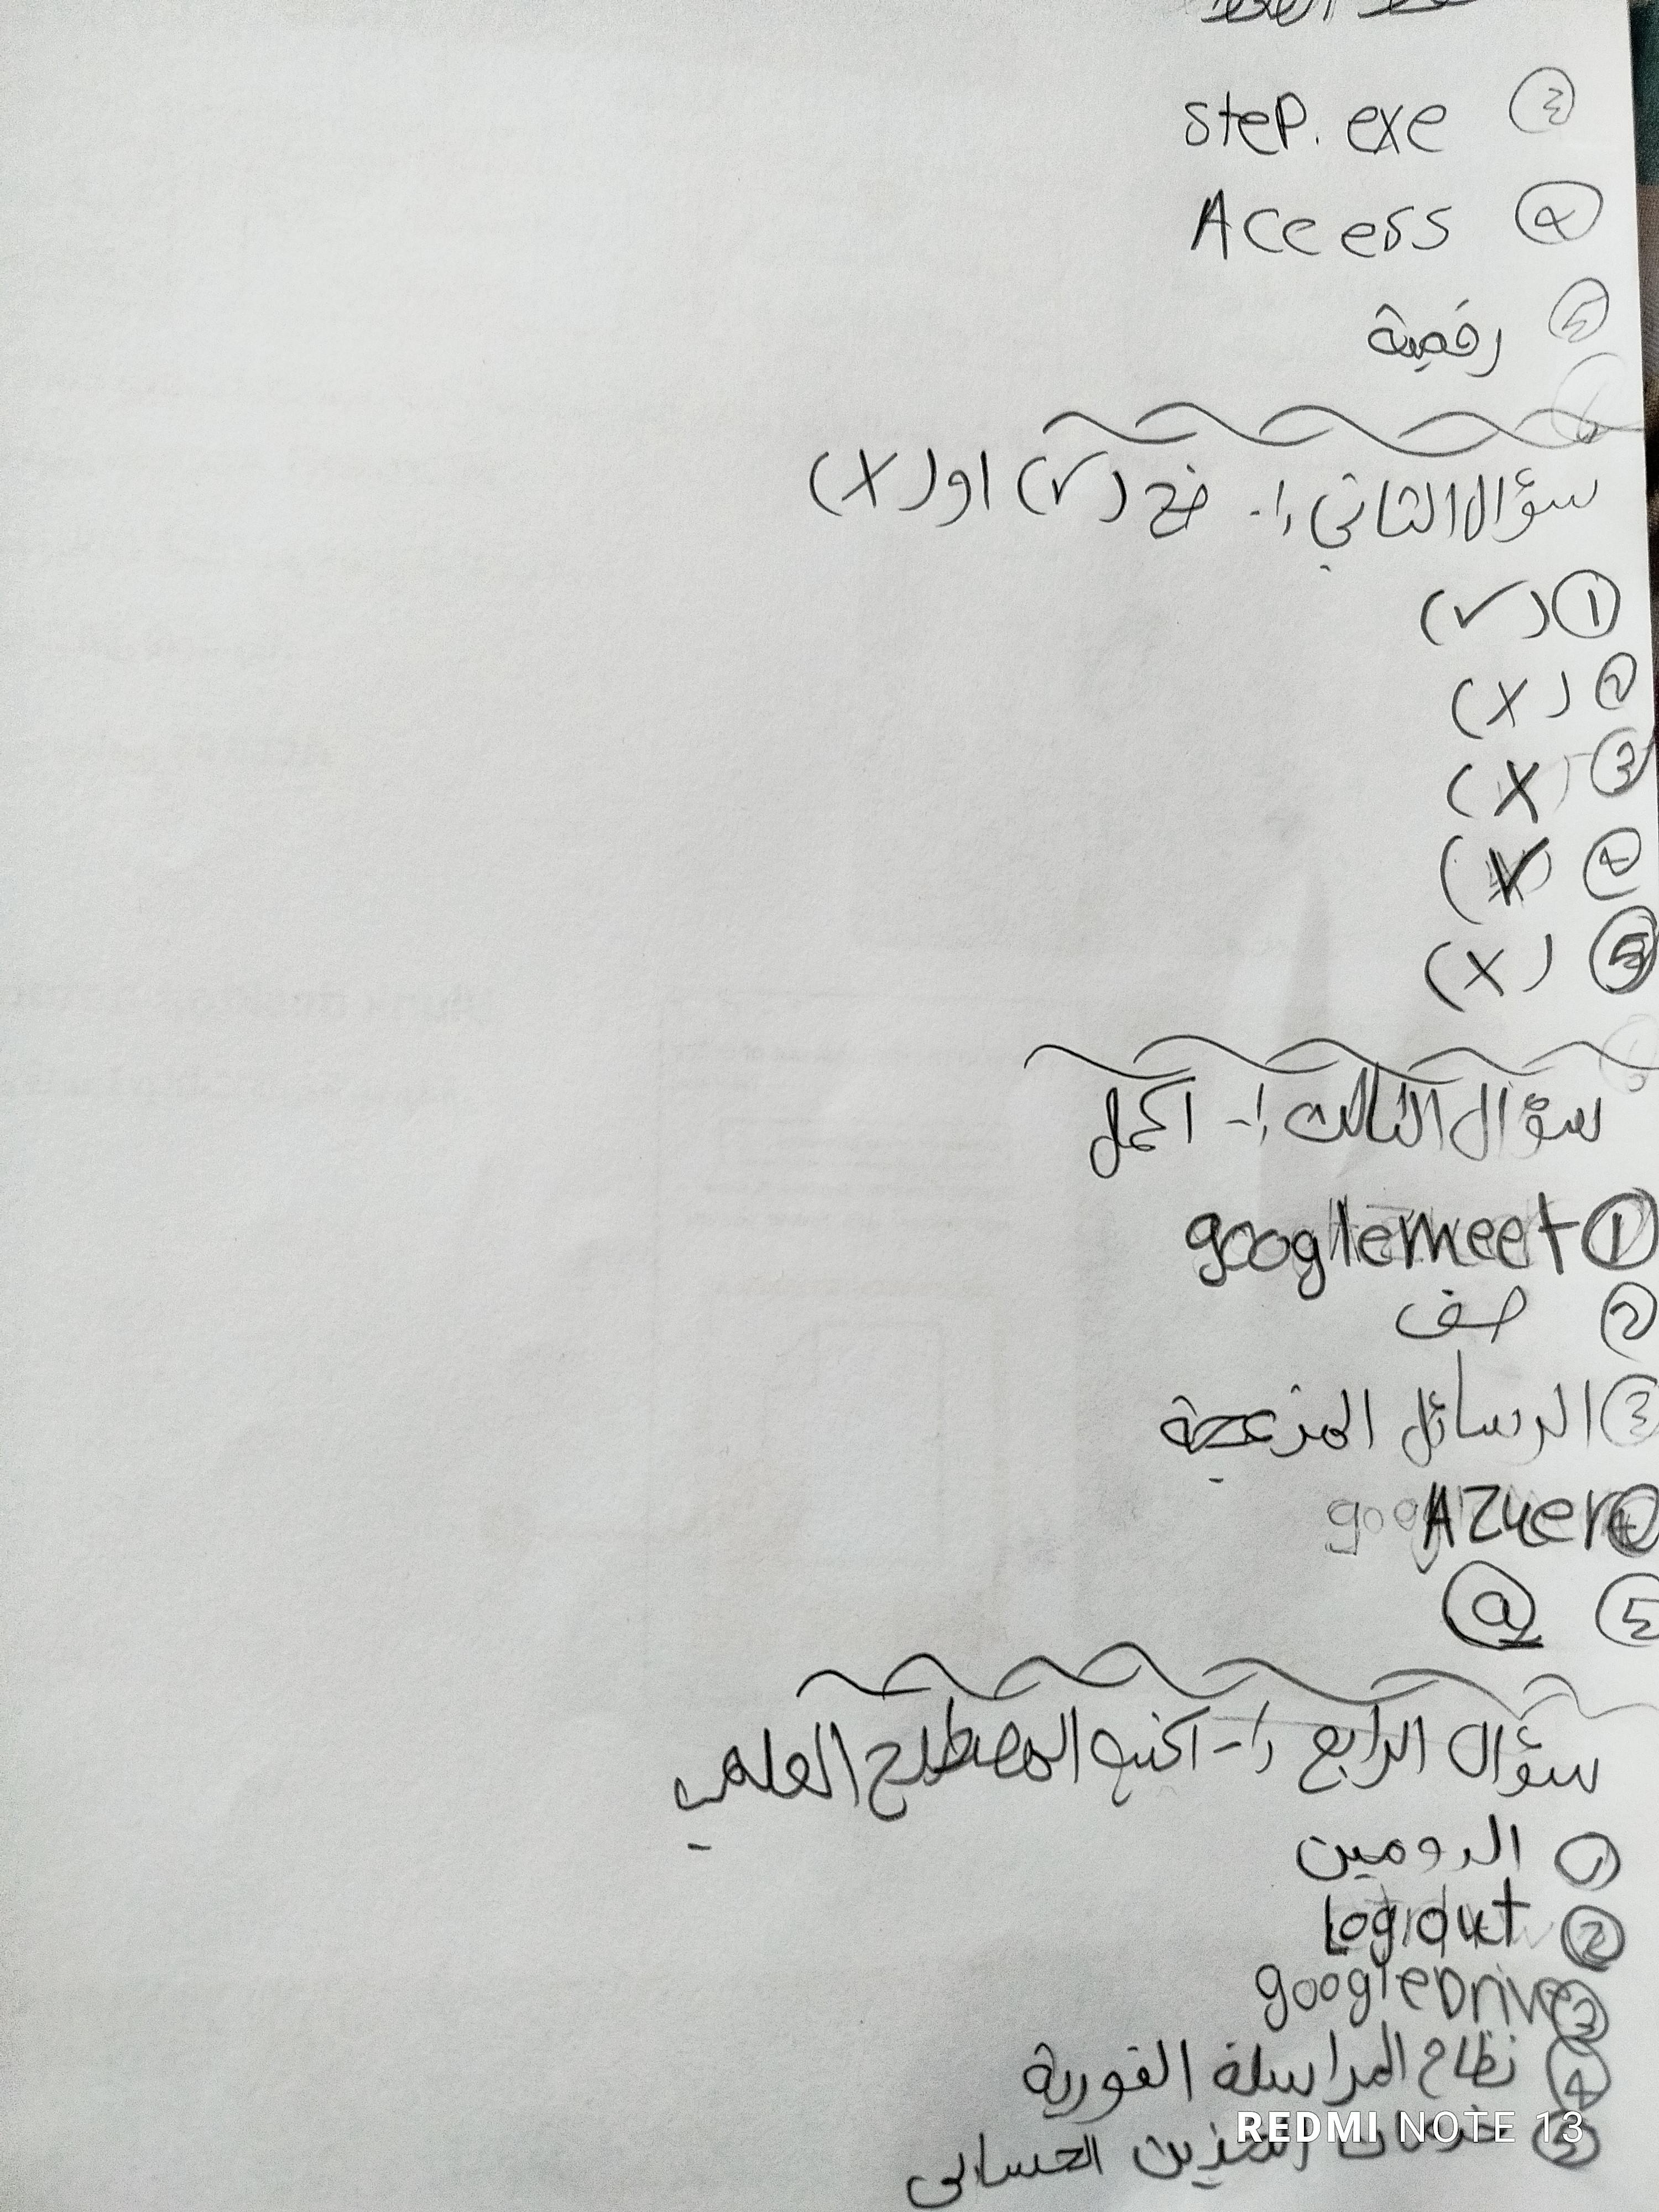 ③ step.exe
④ Access
⑤ رقمية
سؤال الثاني :- ضح (✓) او (X)
① (✓)
② (X)
③ (X)
④ (✓)
⑤ (X)
سؤال الثالث :- اكمل
① googlemeet
② صف
③ الرسائل المزعجة
④ AZuer
⑤ @
سؤال الرابع :- اكتب المصطلح العلمي
① الدومين
② Logout
③ googleDrive
④ نظام المراسلة الفورية
⑤ التخزين الحسابي
REDMI NOTE 13